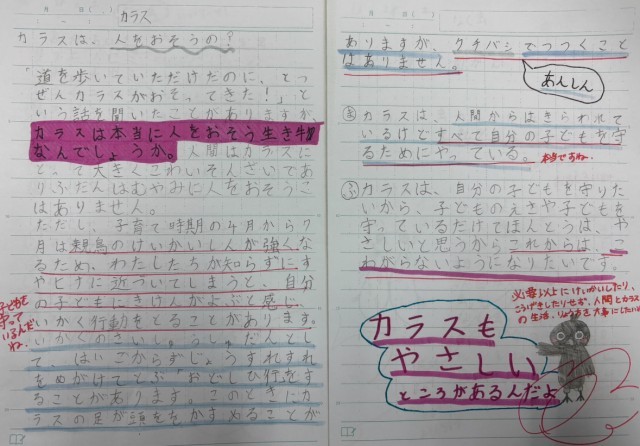 月 日( )
カラス
カラスは、人をおそうの?
「道を歩いていただけたのに、とっ
ぜんカラスがおそってきた!」と
いう話を聞いたことがありますが、
カラスは本当に人をおそう生き物
なんでしょうか。人間はカラスに
とって大きくこわいそんざいであ
りふだんはむやみに人をおそうこ
はありません。
ただし、子育て時期の4月から7
月は親鳥のけいかいしんが強くな
るため、わたしたちが知らずにす
やヒナに近づいてしまうと、自分
の子どもにきけんがよぶと感じ、
いかく行動をとることがあります。
いかくのさい
て、はいごから
うすれすれ
をめがけてとぶ「おどし
行をす
ることがあります。このときにカ
ラスの足が頭をかすめることが
子どもを
守って
いるんだ
ね。
月 日( )
ありますが、クチバシでつつくこと
はありません。
あんしん
カラスは、人間からはきらわれて
いるけどすべて自分の子どもを守
るためにやっている。
本当ですね。
カラスは、自分の子どもを守りた
いから、子どものえさや子どもを
守っているだけでほんとうは、や
さしいと思うからこれからは、こ
わがらないようになりたいです。
必要以上にけいかいしたり、
こうげきしたりせず、人間とカラス
の生活、りょうほう大事にしたいね
カラスも
やさしい
ところがあるんだよ